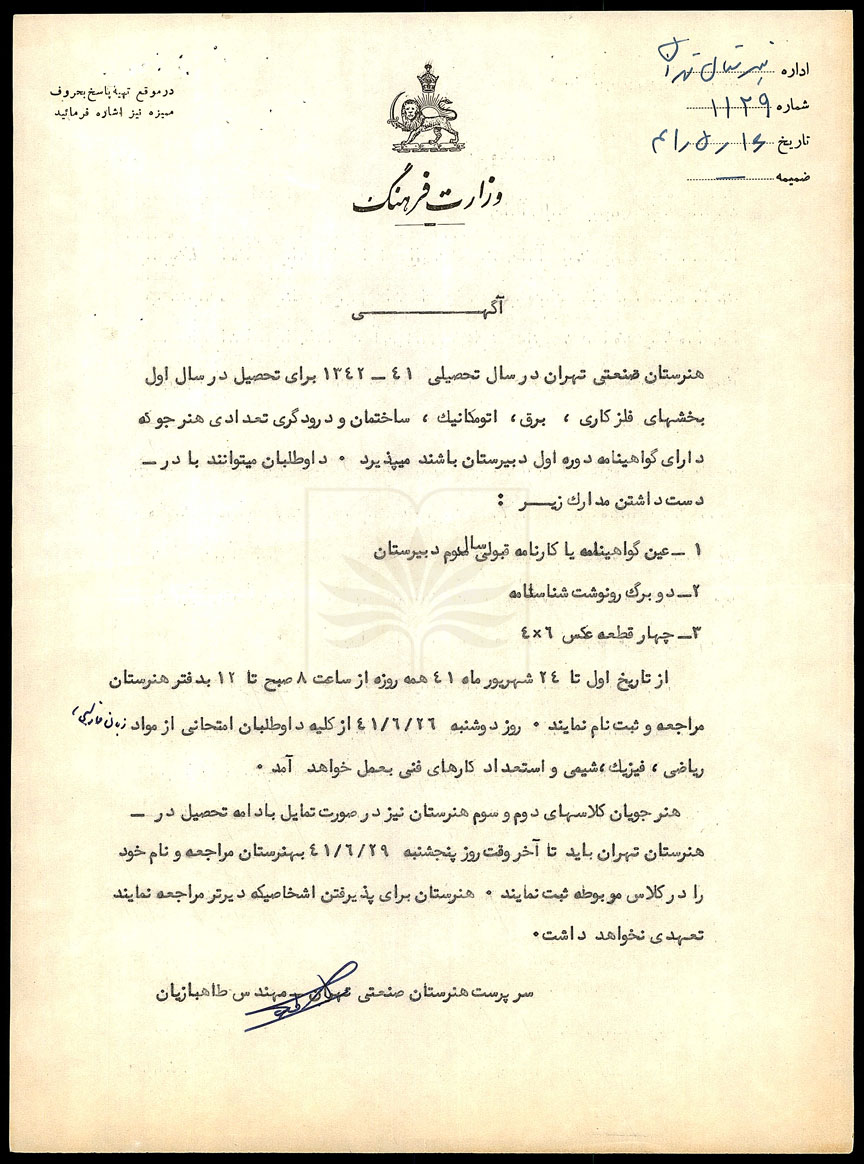 اداره هنرستان تهران
شماره ۱۱۲۹
تاریخ
ضمیمه —
در موقع تهیه پاسخ بحروف
ممیزه نیز اشاره فرمائید
وزارت فرهنگ
آگهـــی
هنرستان صنعتی تهران در سال تحصیلی ۴۱ ــ ۱۳۴۲ برای تحصیل در سال اول
بخشهای فلز کاری ، برق ، اتومکانیك ، ساختمان و درودگری تعدادی هنرجو که
دارای گواهینامه دوره اول دبیرستان باشند میپذیرد ۰ داوطلبان میتوانند با در ــ
دست داشتن مدارك زیـــر :
۱ ــ عین گواهینامه یا کارنامه قبولی سال سوم دبیرستان
۲ــ دو برگ رونوشت شناسنامه
۳ــ چهار قطعه عکس ۶×۴
از تاریخ اول تا ۲۴ شهریور ماه ۴۱ همه روزه از ساعت ۸ صبح تا ۱۲ بدفتر هنرستان
مراجعه و ثبت نام نمایند ۰ روز دوشنبه ۴۱/۶/۲۶ از کلیه داوطلبان امتحانی از مواد زبان فارسی ،
ریاضی ، فیزیك ،شیمی و استعداد کارهای فنی بعمل خواهد آمد ۰
هنرجویان کلاسهای دوم و سوم هنرستان نیز در صورت تمایل بادامه تحصیل در ــ
هنرستان تهران باید تا آخر وقت روز پنجشنبه ۴۱/۶/۲۹ بهنرستان مراجعه و نام خود
را در کلاس مربوطه ثبت نمایند ۰ هنرستان برای پذیرفتن اشخاصیکه دیرتر مراجعه نمایند
تعهدی نخواهد داشت۰
سرپرست هنرستان صنعتی تهران ــ مهندس طاهبازیان